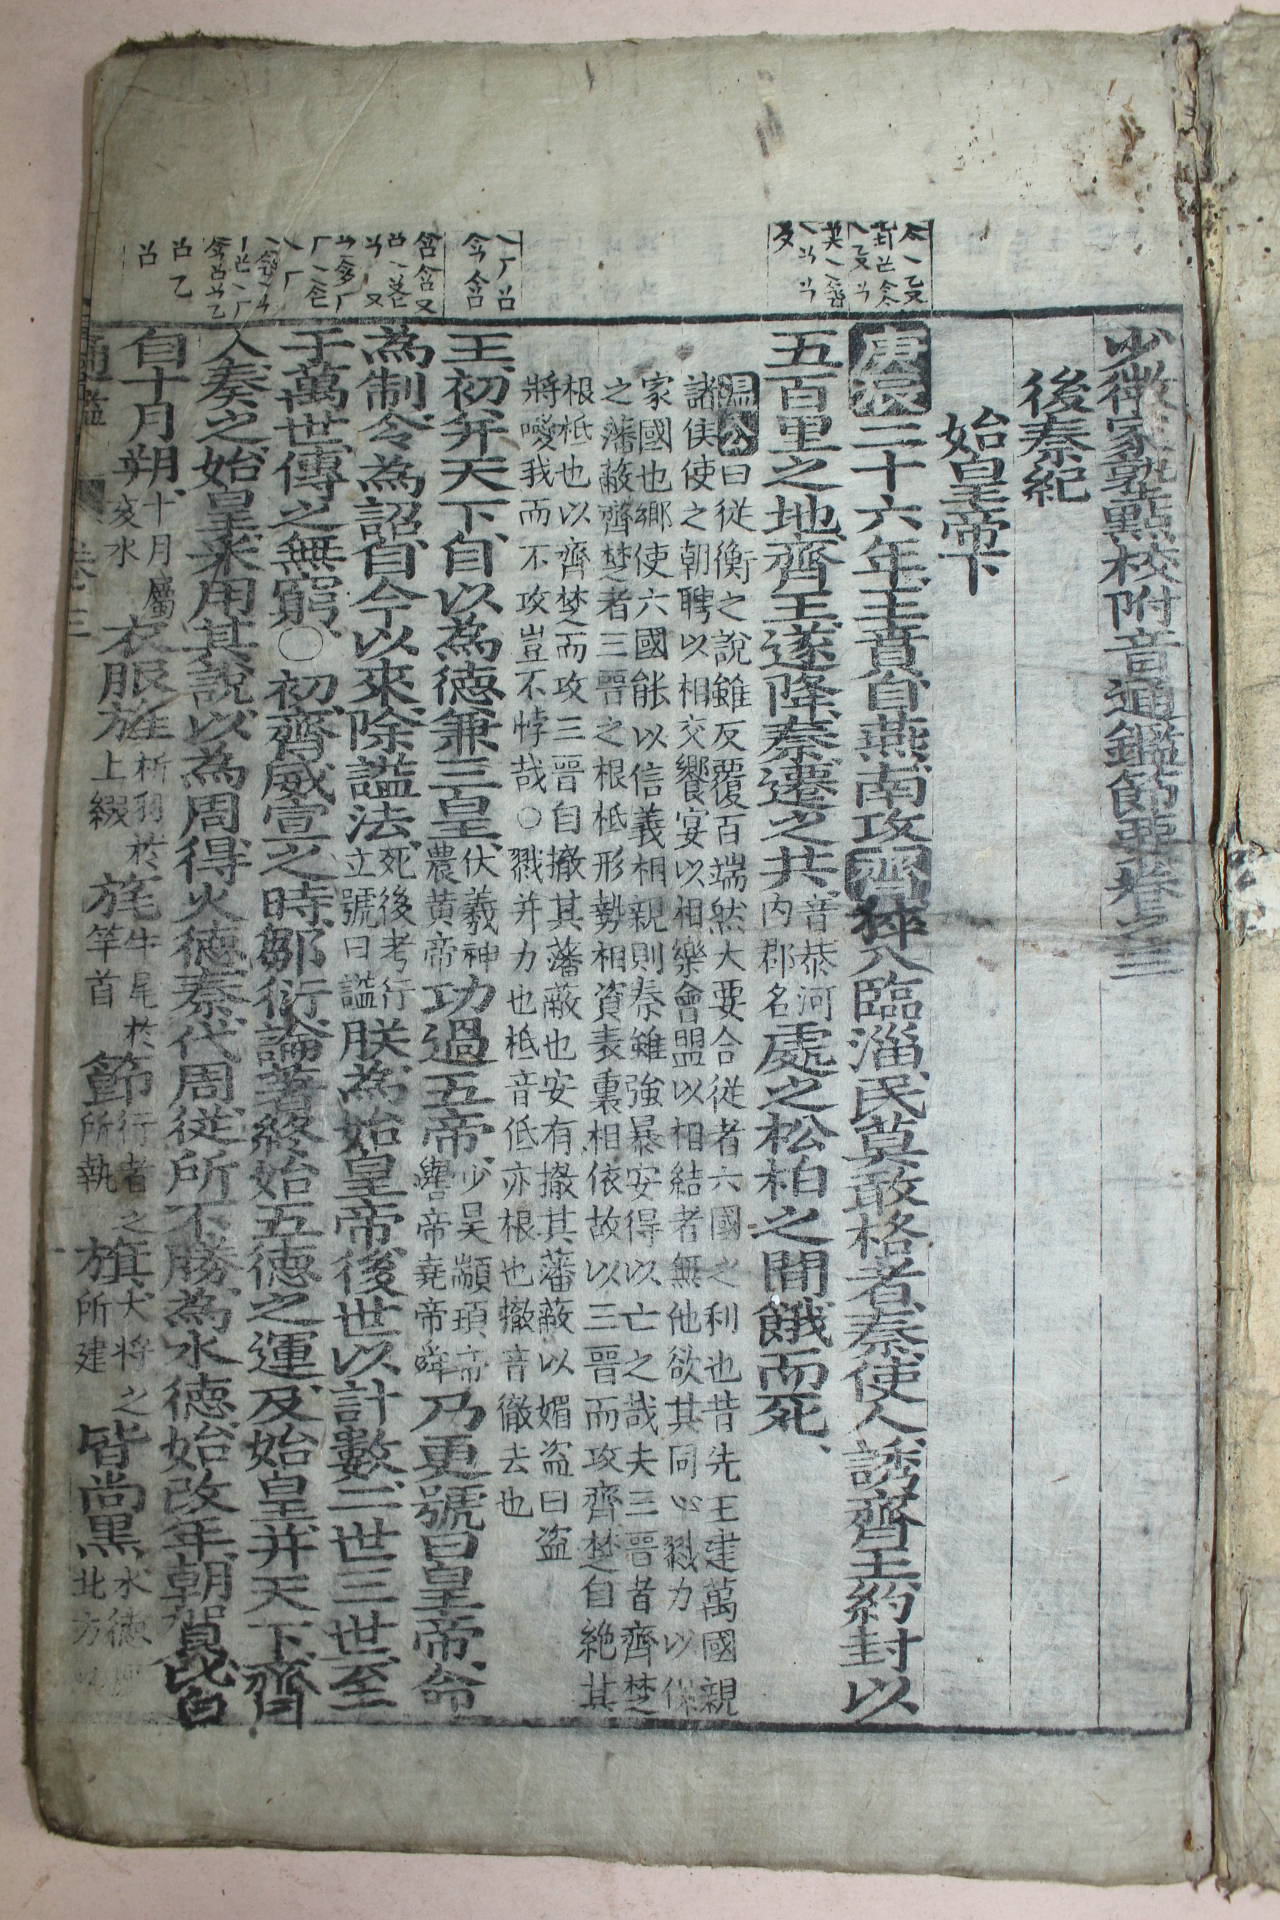 少微家塾點校附音通鑑節要卷之三
後秦紀
始皇帝下
庚辰二十六年王賁自燕南攻齊猝入臨淄民莫敢格者秦使人誘齊王約封以
五百里之地齊王遂降秦遷之共音恭河內郡名處之松柏之間餓而死
溫公曰從衡之說雖反覆百端然大要合從者六國之利也昔先王建萬國親
諸侯使之朝聘以相交饗宴以相樂會盟以相結者無他欲其同心戮力以保
家國也鄉使六國能以信義相親則秦雖強暴安得以亡之哉夫三晉者齊楚
之藩蔽齊楚者三晉之根柢形勢相資表裏相依故以三晉而攻齊楚自絶其
根柢也以齊楚而攻三晉自撤其藩蔽也安有撤其藩蔽以媚盗曰盗
將噯我而不攻豈不悖哉○戮并力也柢音低亦根也撤音徹去也
王初并天下自以為德兼三皇伏羲神農黄帝功過五帝少昊顓頊帝嚳帝堯帝舜乃更號曰皇帝命
為制令為詔自今以來除謚法死後考行立號曰謚朕為始皇帝後世以計數二世三世至
于萬世傳之無窮○初齊威宣之時鄒衍論著終始五德之運及始皇并天下齊
人奏之始皇采用其說以為周得火德秦代周從所不勝為水德始改年朝賀皆
自十月朔十月屬亥水衣服旌析羽於上綴旄牛尾於竿首節行者之所執旗大將之所建皆尚黒水德北方
通鑑 卷三